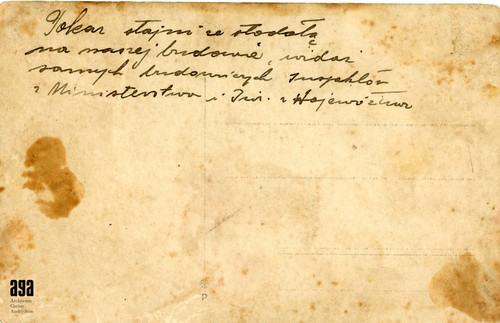 Pokar stajni ze stodołą
na naszej budowie, widać
samych budowniczych Inspektor
z Ministerstwa i Inż. z Województwa
aga
Archiwum
Gminy
Andrychów